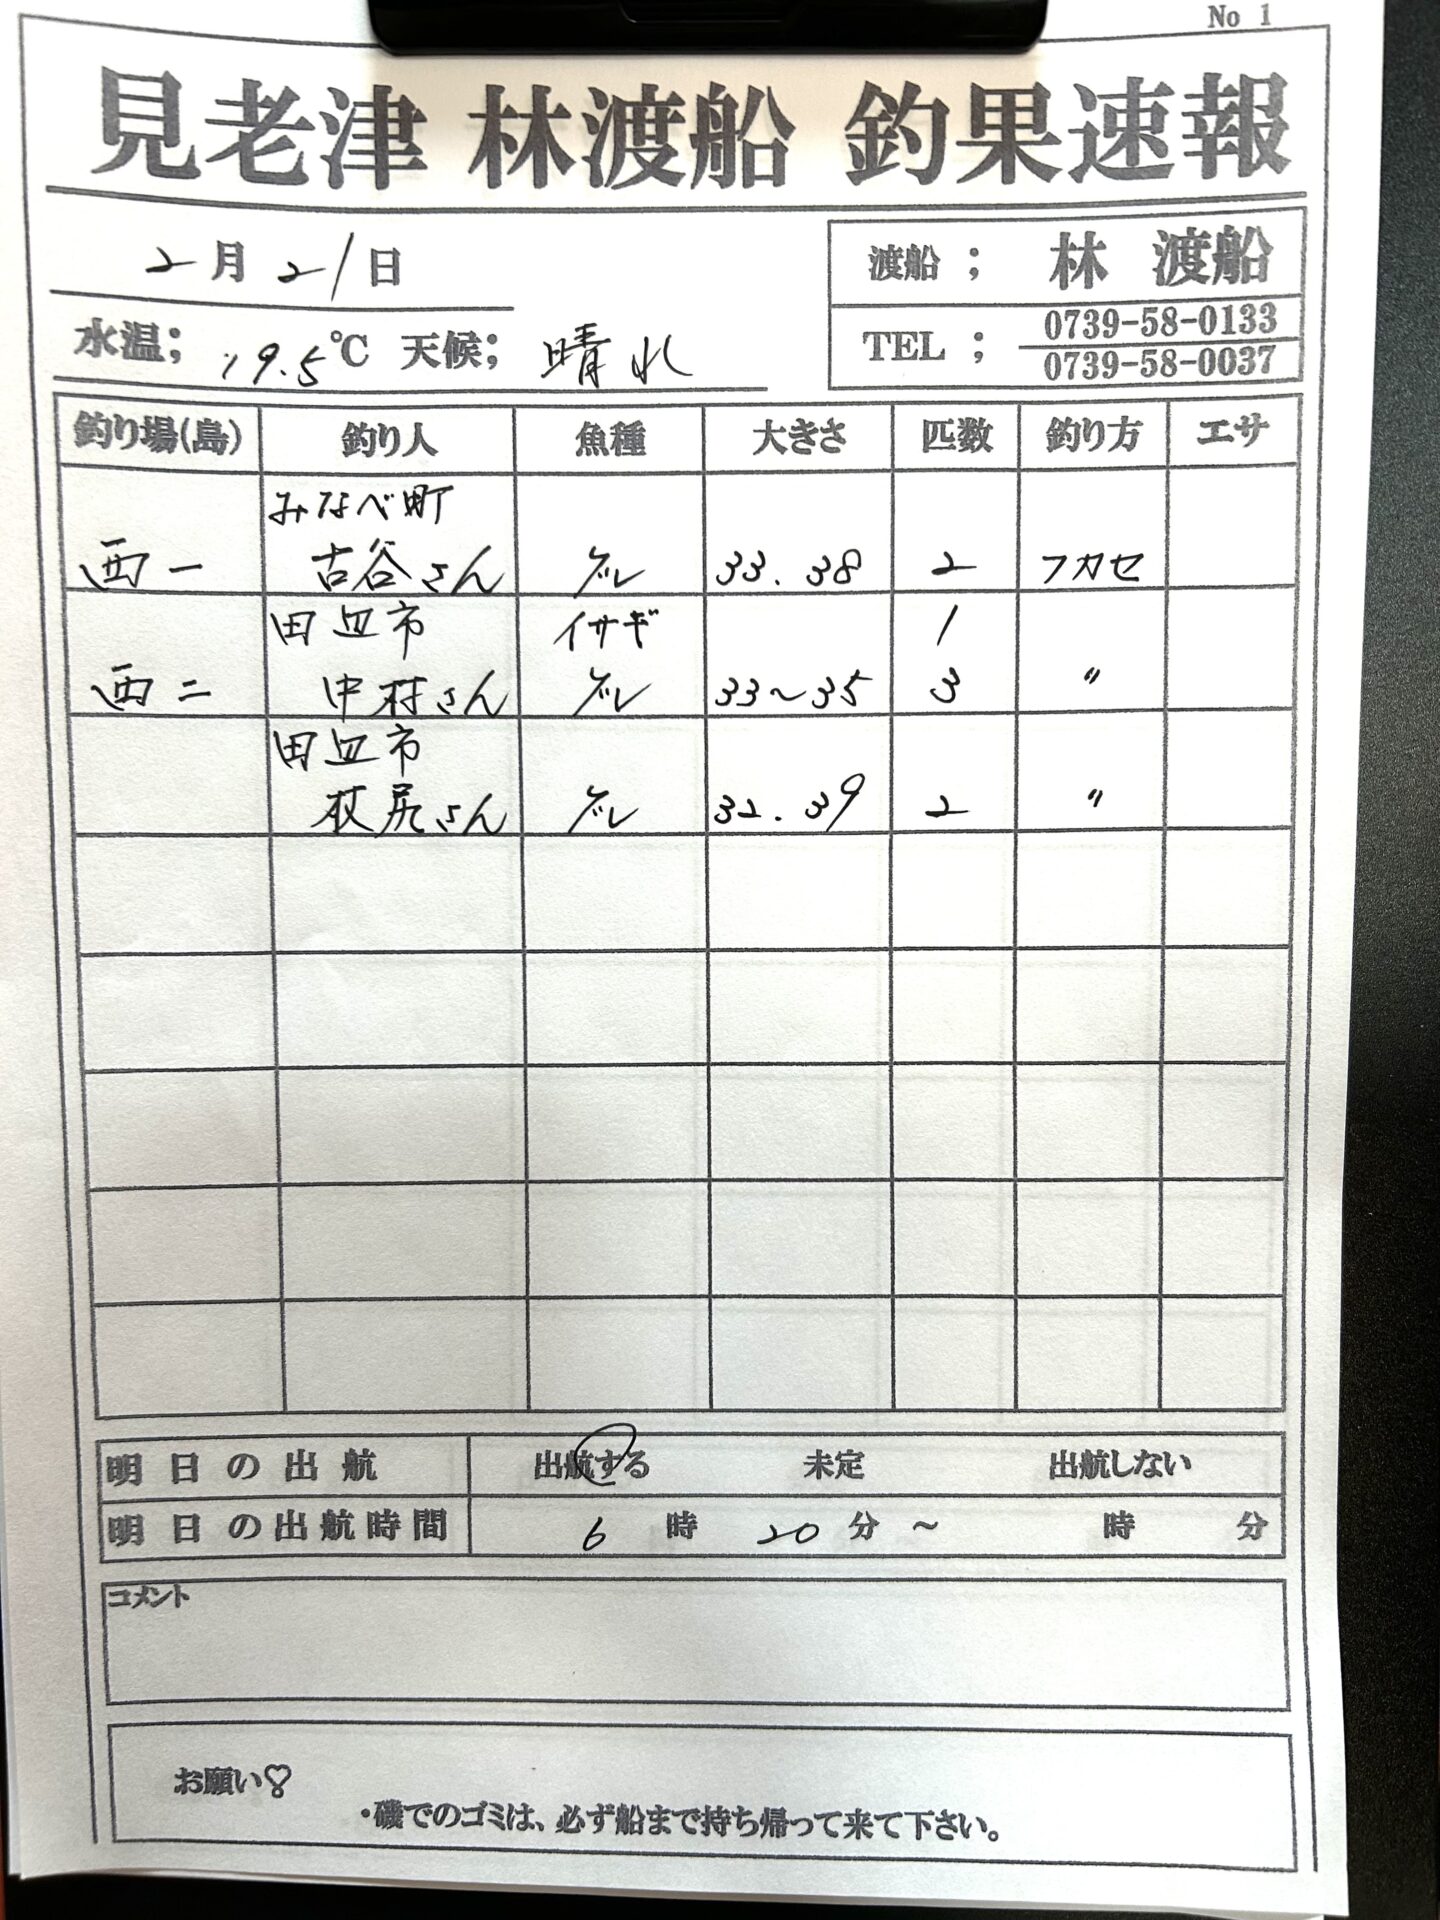 No 1
見老津 林渡船 釣果速報
2月21日
渡船； 林 渡船
水温； 19.5℃ 天候； 晴れ
TEL ； 0739-58-0133
0739-58-0037
釣り場(島) 釣り人 魚種 大きさ 匹数 釣り方 エサ
みなべ町
西一 古谷さん グレ 33.38 2 フカセ
田辺市 イサギ 1
西二 中村さん グレ 33～35 3 〃
田辺市
さん グレ 32.39 2 〃
明日の出航 出航する 未定 出航しない
明日の出航時間 6時20分～ 時 分
コメント
お願い♡
・磯でのゴミは、必ず船まで持ち帰って来て下さい。